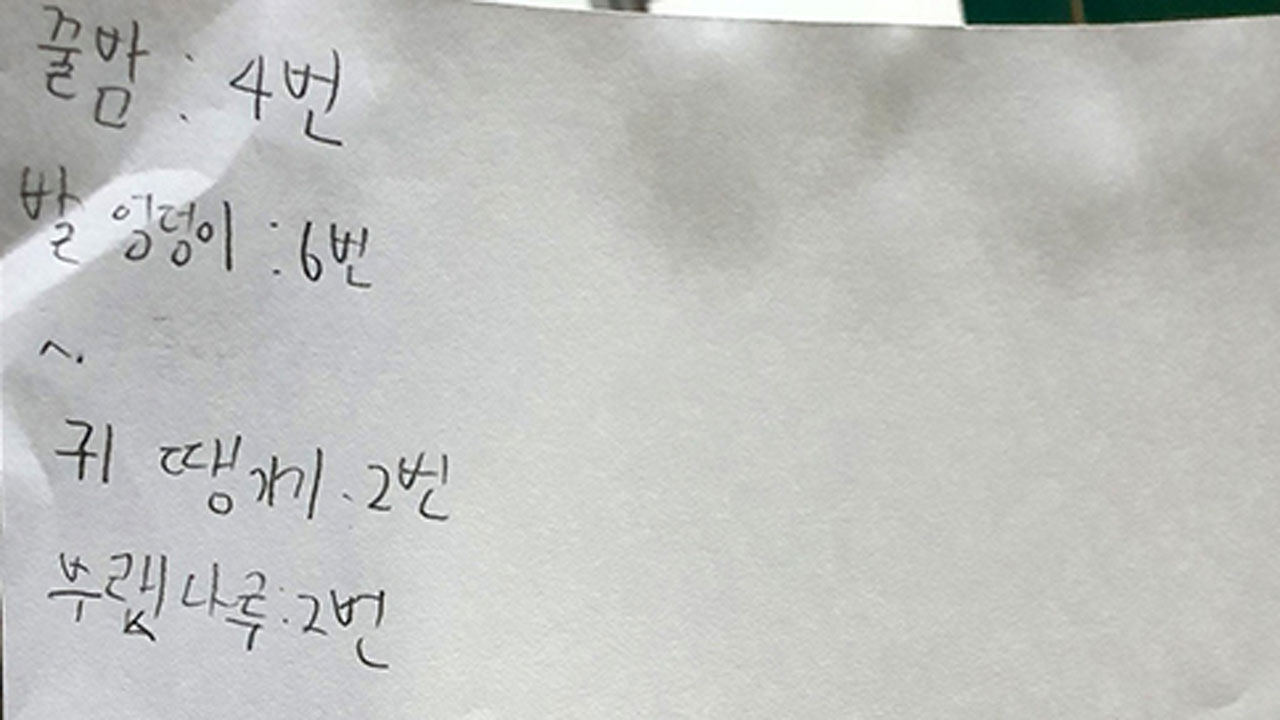 꿀밤 : 4번
발 엉덩이 : 6번
귀 땡기기. 2번
나루: 2번